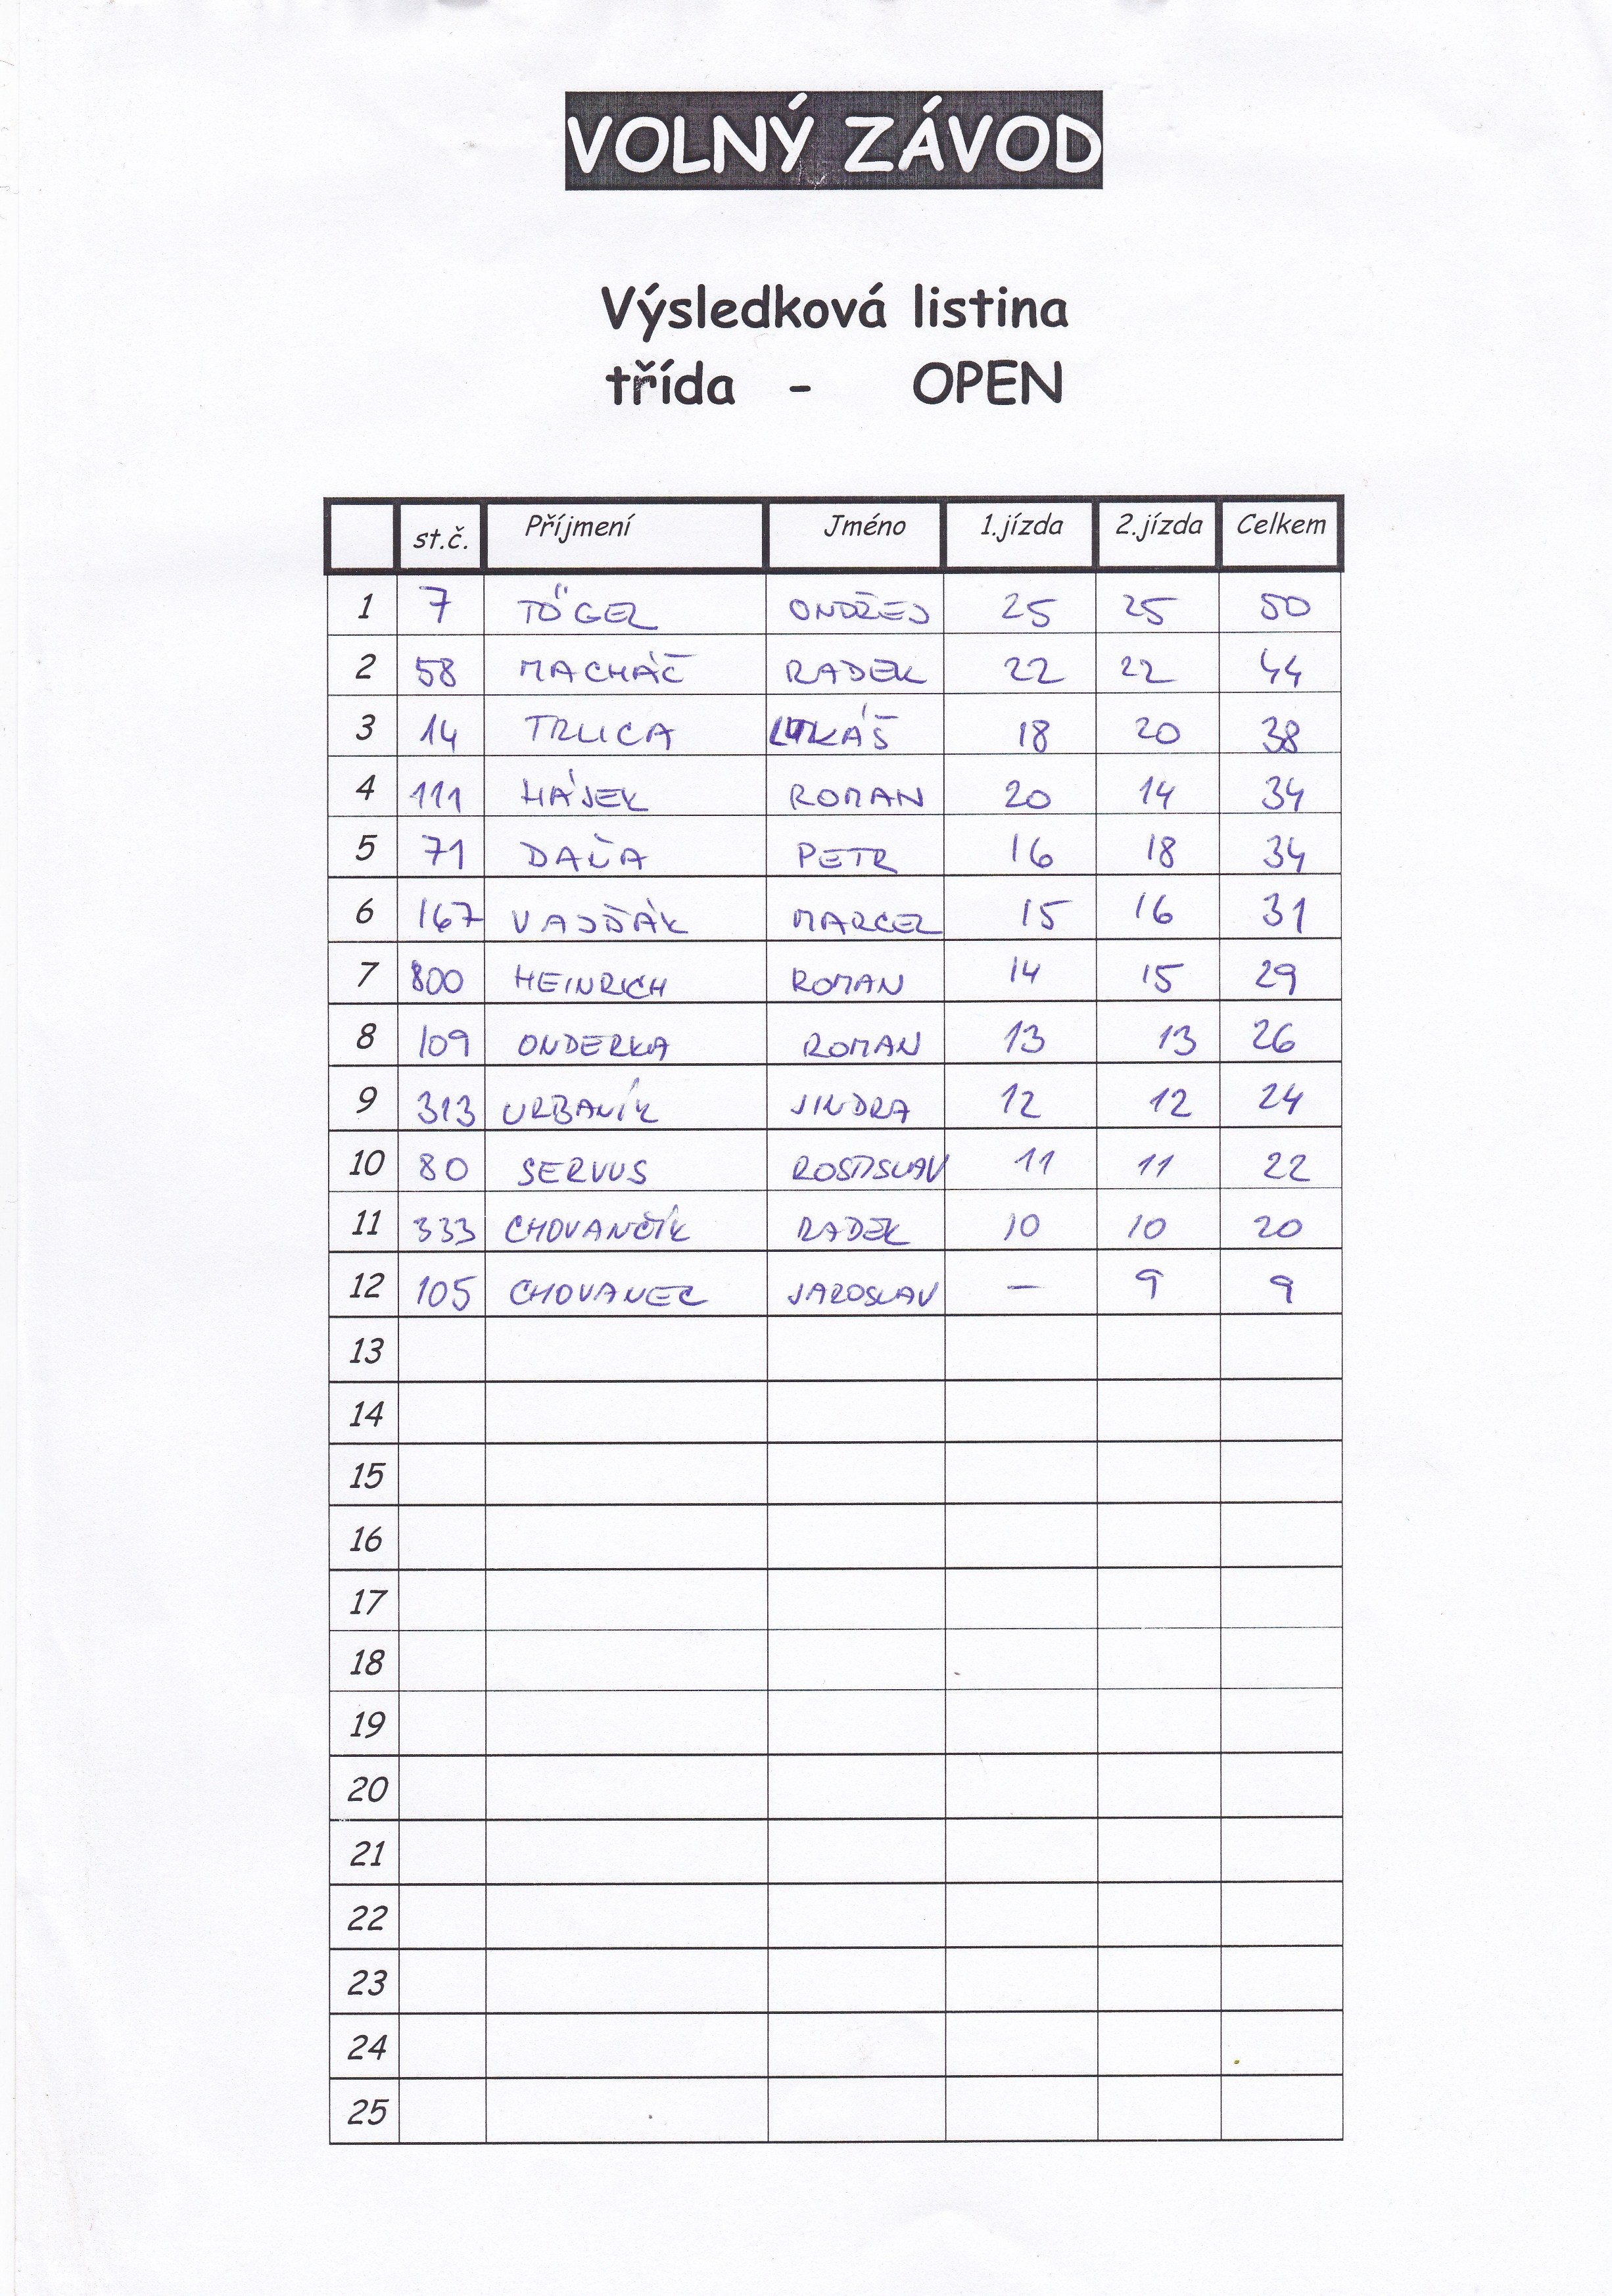 VOLNÝ ZÁVOD
Výsledková listina
třída - OPEN
st.č. Příjmení Jméno 1.jízda 2.jízda Celkem
1 7 TÖGEL ONDŘEJ 25 25 50
2 58 MACHÁČ RADEK 22 22 44
3 14 TRLICA LUKÁŠ 18 20 38
4 111 HÁJEK ROMAN 20 14 34
5 71 DAŇA PETR 16 18 34
6 167 MARCEL 15 16 31
7 800 HEINRICH ROMAN 14 15 29
8 109 ONDERKA ROMAN 13 13 26
9 313 URBANÍK JINDRA 12 12 24
10 80 SERVUS ROSTISLAV 11 11 22
11 333 CHOVANČÍK RADEK 10 10 20
12 105 CHOVANEC JAROSLAV — 9 9
13
14
15
16
17
18
19
20
21
22
23
24
25